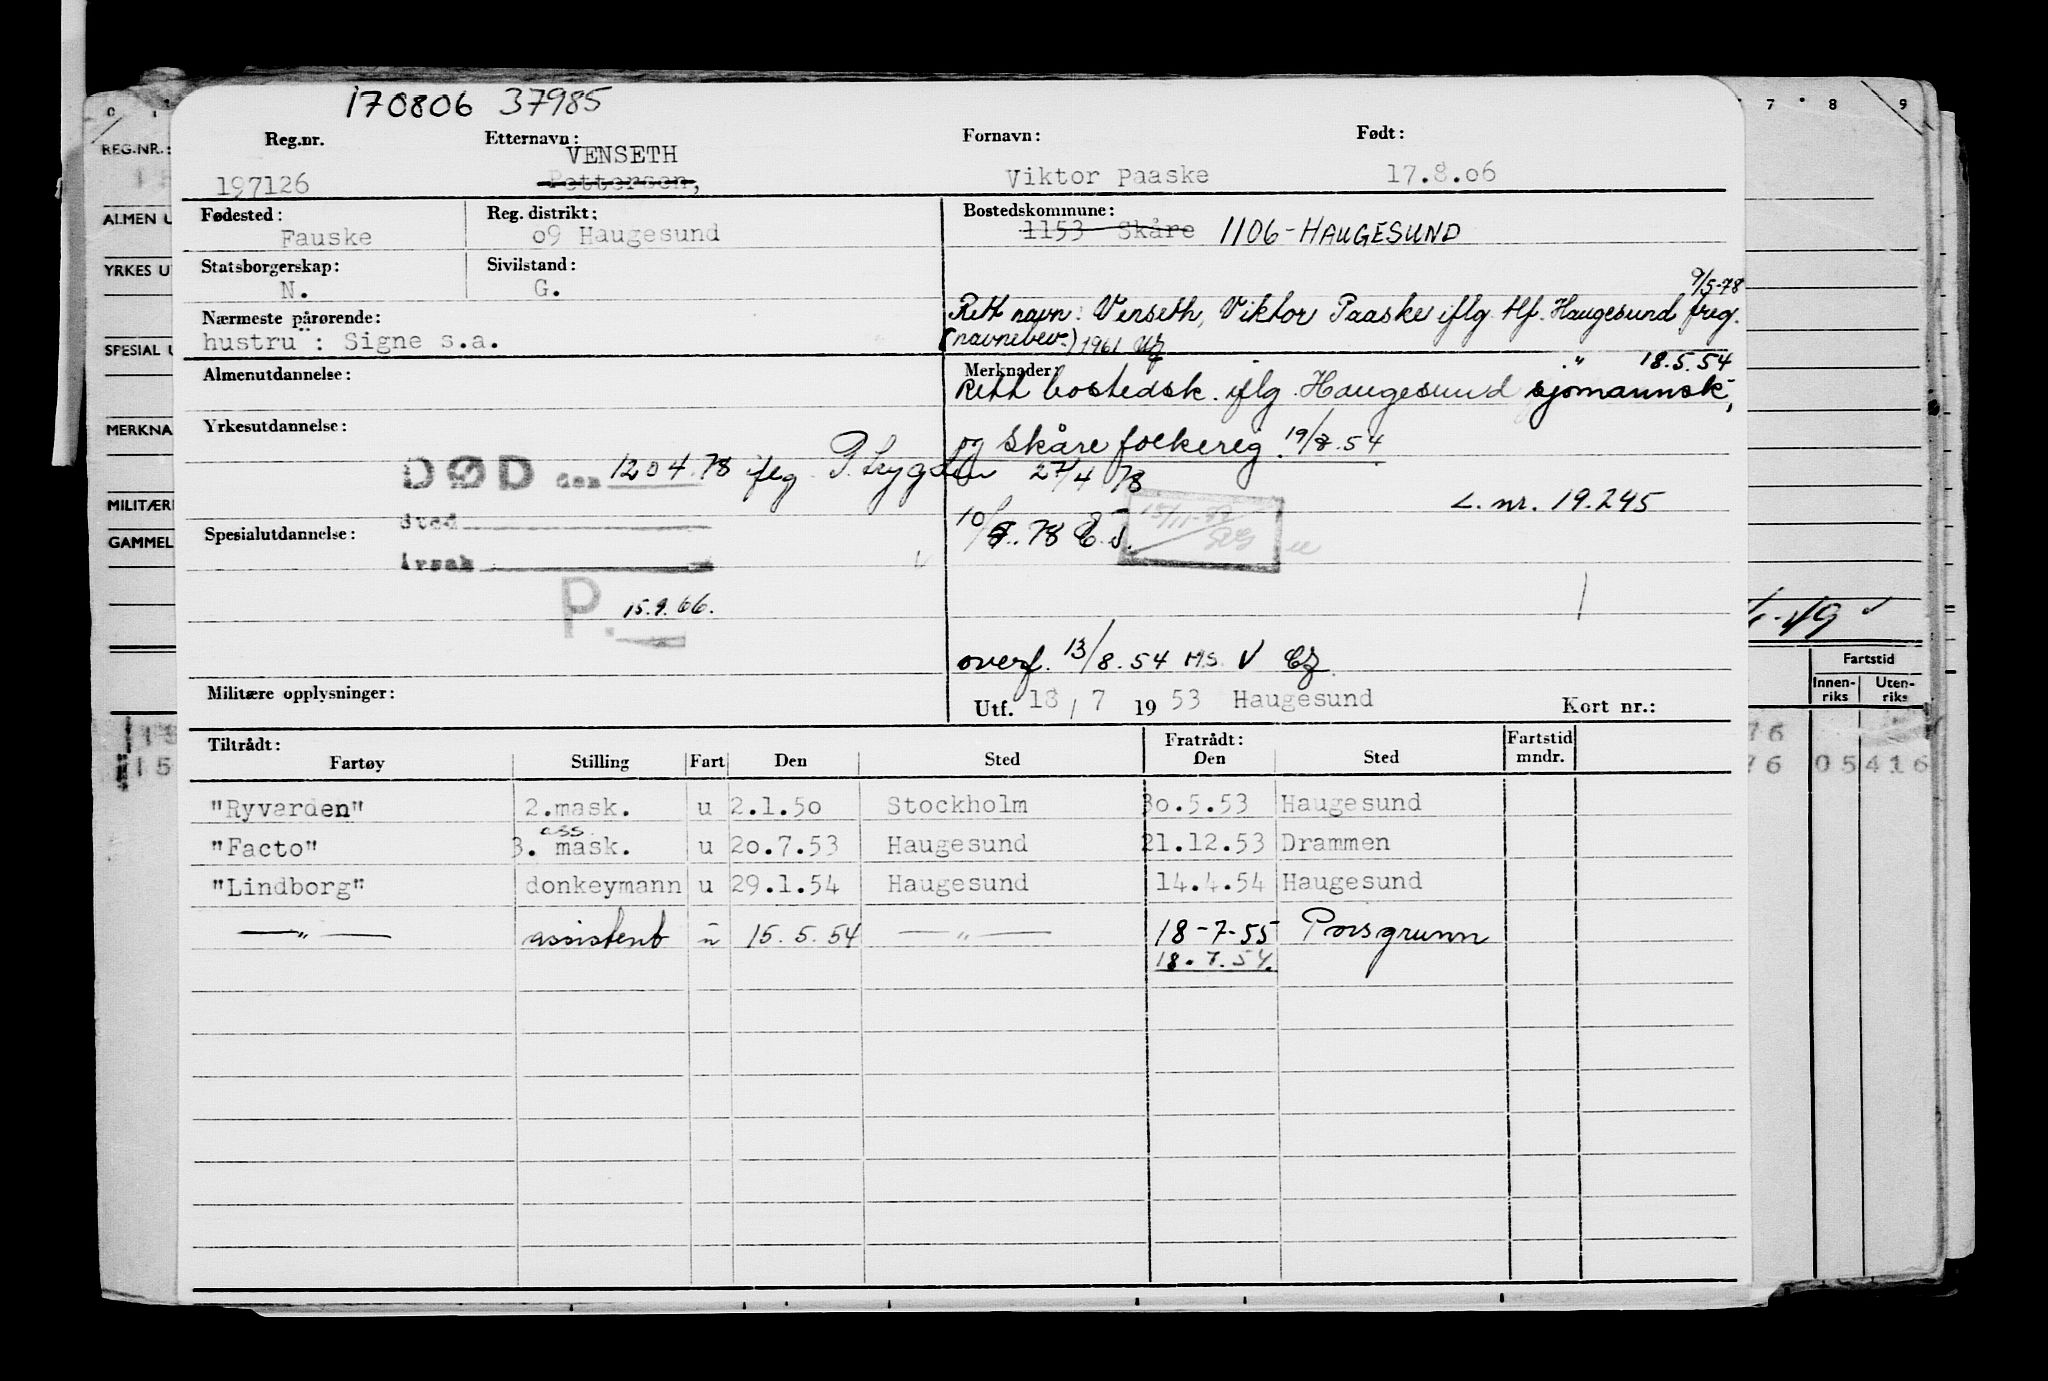 170806 37985
Reg.nr. Etternavn: Fornavn: Født:
VENSETH
197126 Pettersen, Viktor Paaske 17.8.06
Fødested: Reg. distrikt: Bostedskommune:
Fauske 09 Haugesund 1153 Skåre 1106-HAUGESUND
Statsborgerskap: Sivilstand:
N. G.
9/5-78
Rett navn: Venseth, Viktor Paaske iflg. tlf. Haugesund freg.
Nærmeste pårørende:
hustru : Signe s.a.
(navnebev.) 1961
" 18.5.54
Almenutdannelse: Merknader
Rett bostedsk. iflg. Haugesund sjømannsk.,
Yrkesutdannelse:
og Skåre folkereg. 19/8.54
DØD den 12 04.78 iflg. P. Trygden 27/4 78
L. nr. 19.245
Sted
10/8.78 E.J.
Spesialutdannelse:
Årsak
P. 15.9.66.
overf. 13/8.54 M.S. V
Militære opplysninger:
Utf. 18 / 7 19 53 Haugesund Kort nr.:
Tiltrådt: Fratrådt: Fartstid
Fartøy Stilling Fart Den Sted Den Sted mndr.
"Ryvarden" 2.mask. u 2.1.50 Stockholm 30.5.53 Haugesund
ass.
"Facto" 3. mask. u 20.7.53 Haugesund 21.12.53 Drammen
"Lindborg" donkeymann u 29.1.54 Haugesund 14.4.54 Haugesund
—"— assistent u 15.5.54 —"— 18-7-55 Porsgrunn
18.7.54.
0 1 7 8 9
REG.NR.:
ALMEN U
YRKES U
SPESIAL U
MERKNA
MILITÆR
GAMMEL
Fartstid
Innen-riks Uten-riks
76
76 05 416
15